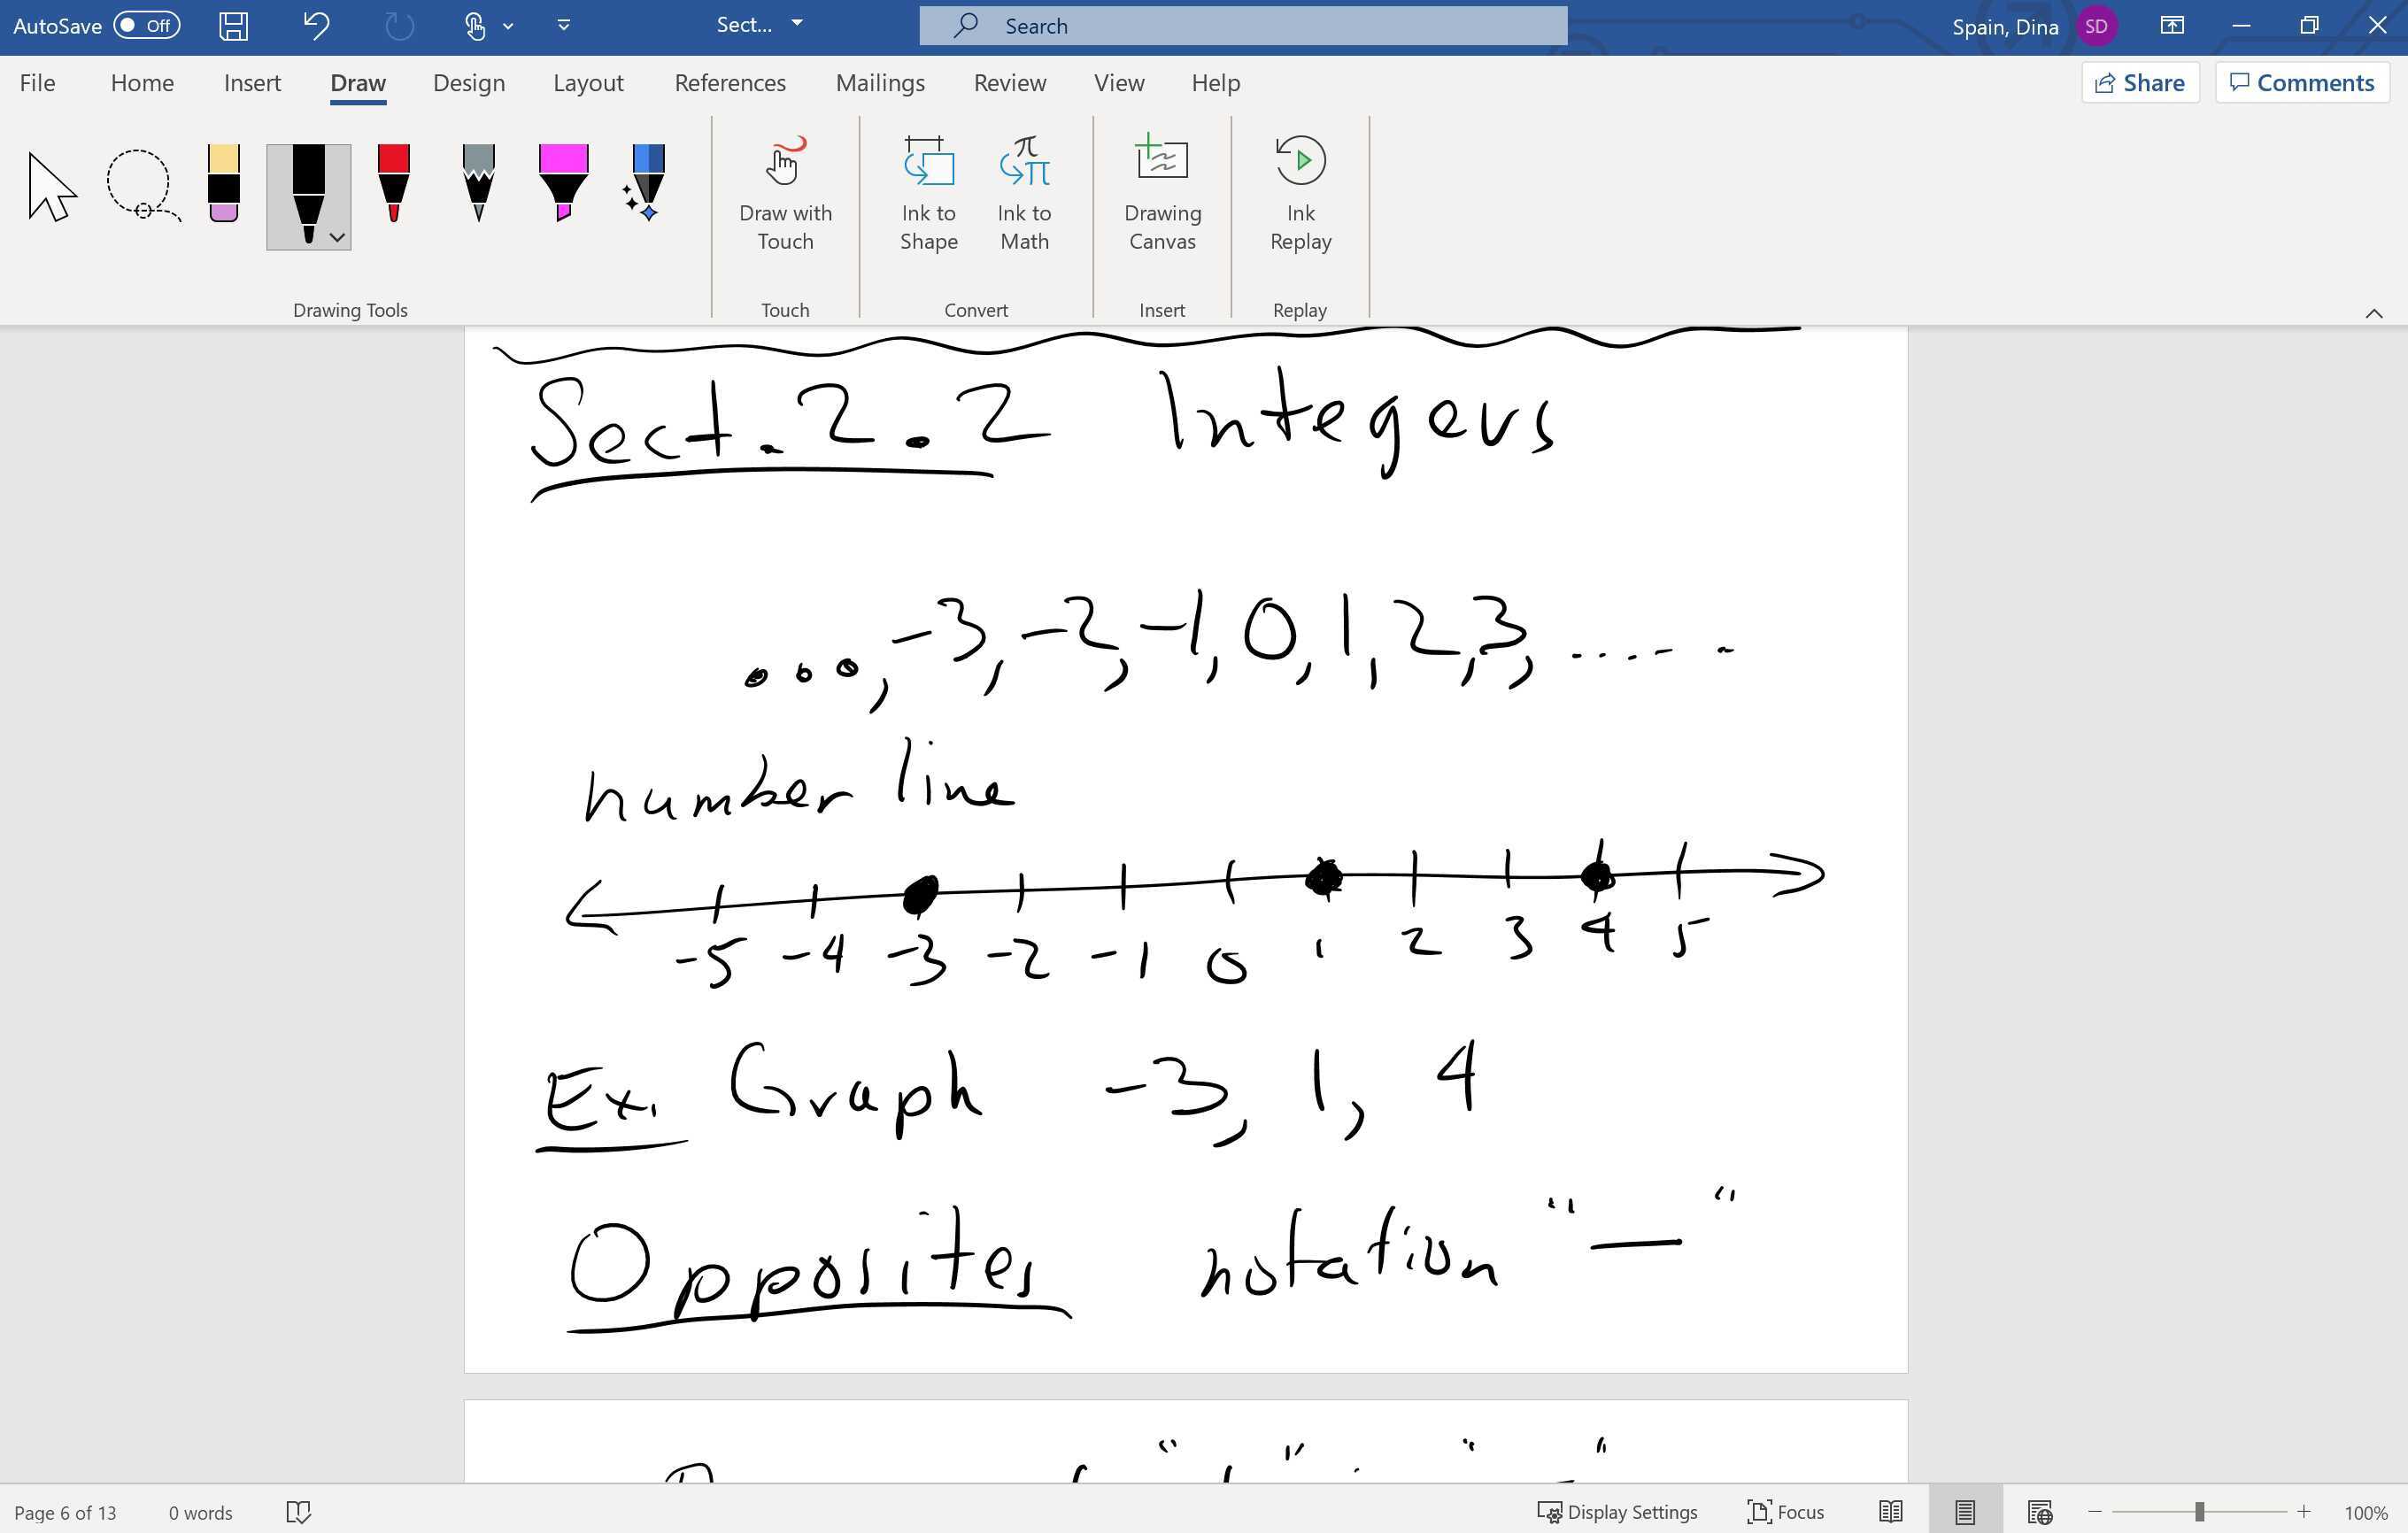 AutoSave Off Sect... Search Spain, Dina SD
File Home Insert Draw Design Layout References Mailings Review View Help Share Comments
Draw with Touch
Ink to Shape
Ink to Math
Drawing Canvas
Ink Replay
Drawing Tools Touch Convert Insert Replay
Sect. 2.2 Integers
..., -3, -2, -1, 0, 1, 2, 3, ......
number line
-5 -4 -3 -2 -1 0 1 2 3 4 5
Ex. Graph -3, 1, 4
Opposites notation "—"
Page 6 of 13 0 words Display Settings Focus 100%